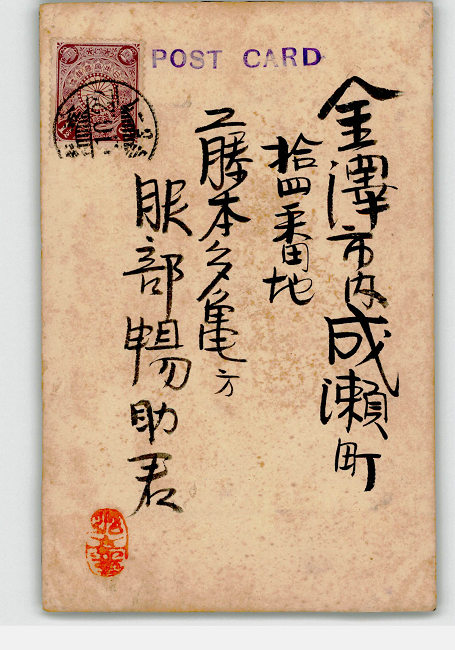 POST CARD
金澤市内成瀬町
拾四番地
藤本多亀方
服部暢助君